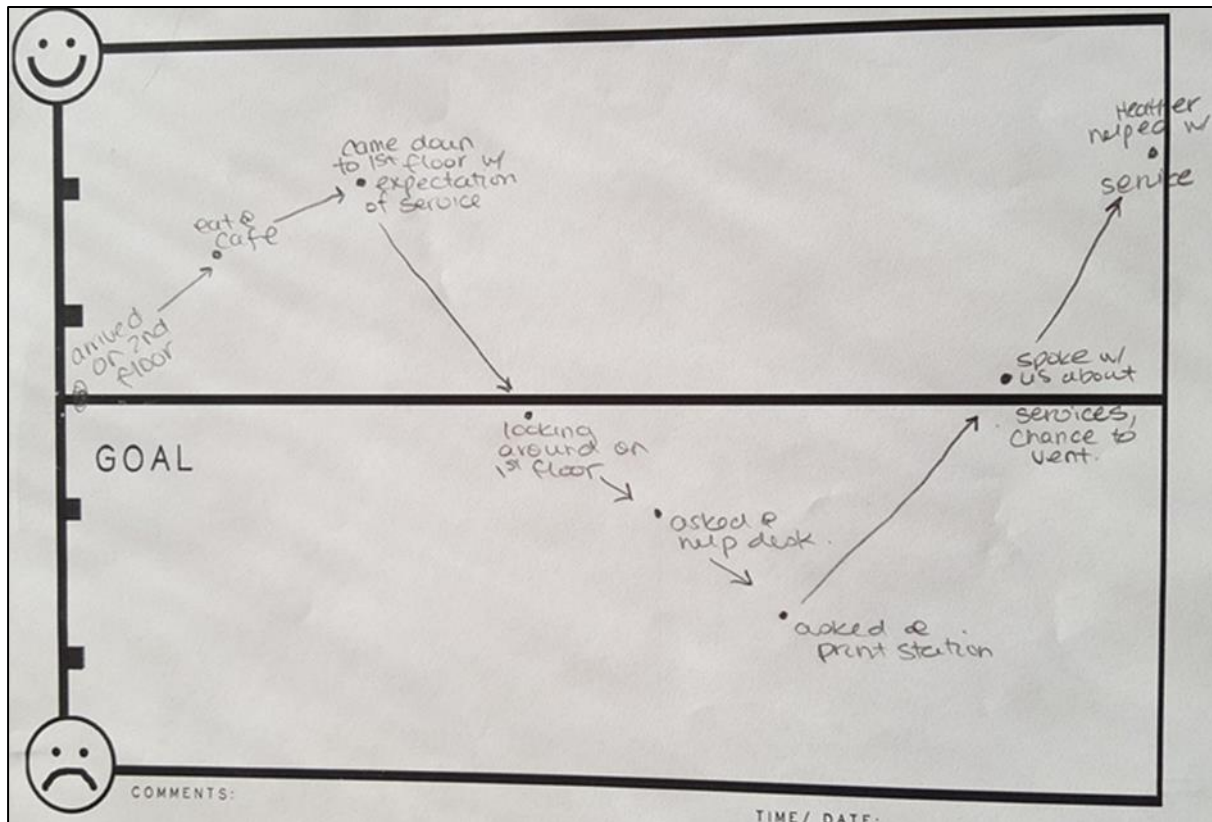 arrived
on 2nd
floor
eat @
cafe
came down
to 1st floor w/
expectation
of service
looking
around on
1st floor
asked @
help desk.
asked @
print station
spoke w/
us about
services,
chance to
vent.
Heather
helped w/
service
GOAL
COMMENTS:
TIME/ DATE: